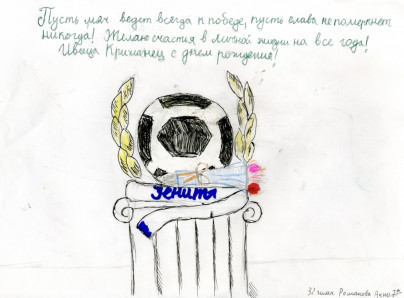 Пусть мяч ведет всегда к победе, пусть слава не померкнет
никогда! Желаю счастья в личной жизни на все года!
Ивица Крижанец с днем рождения!
Зениты
Романова